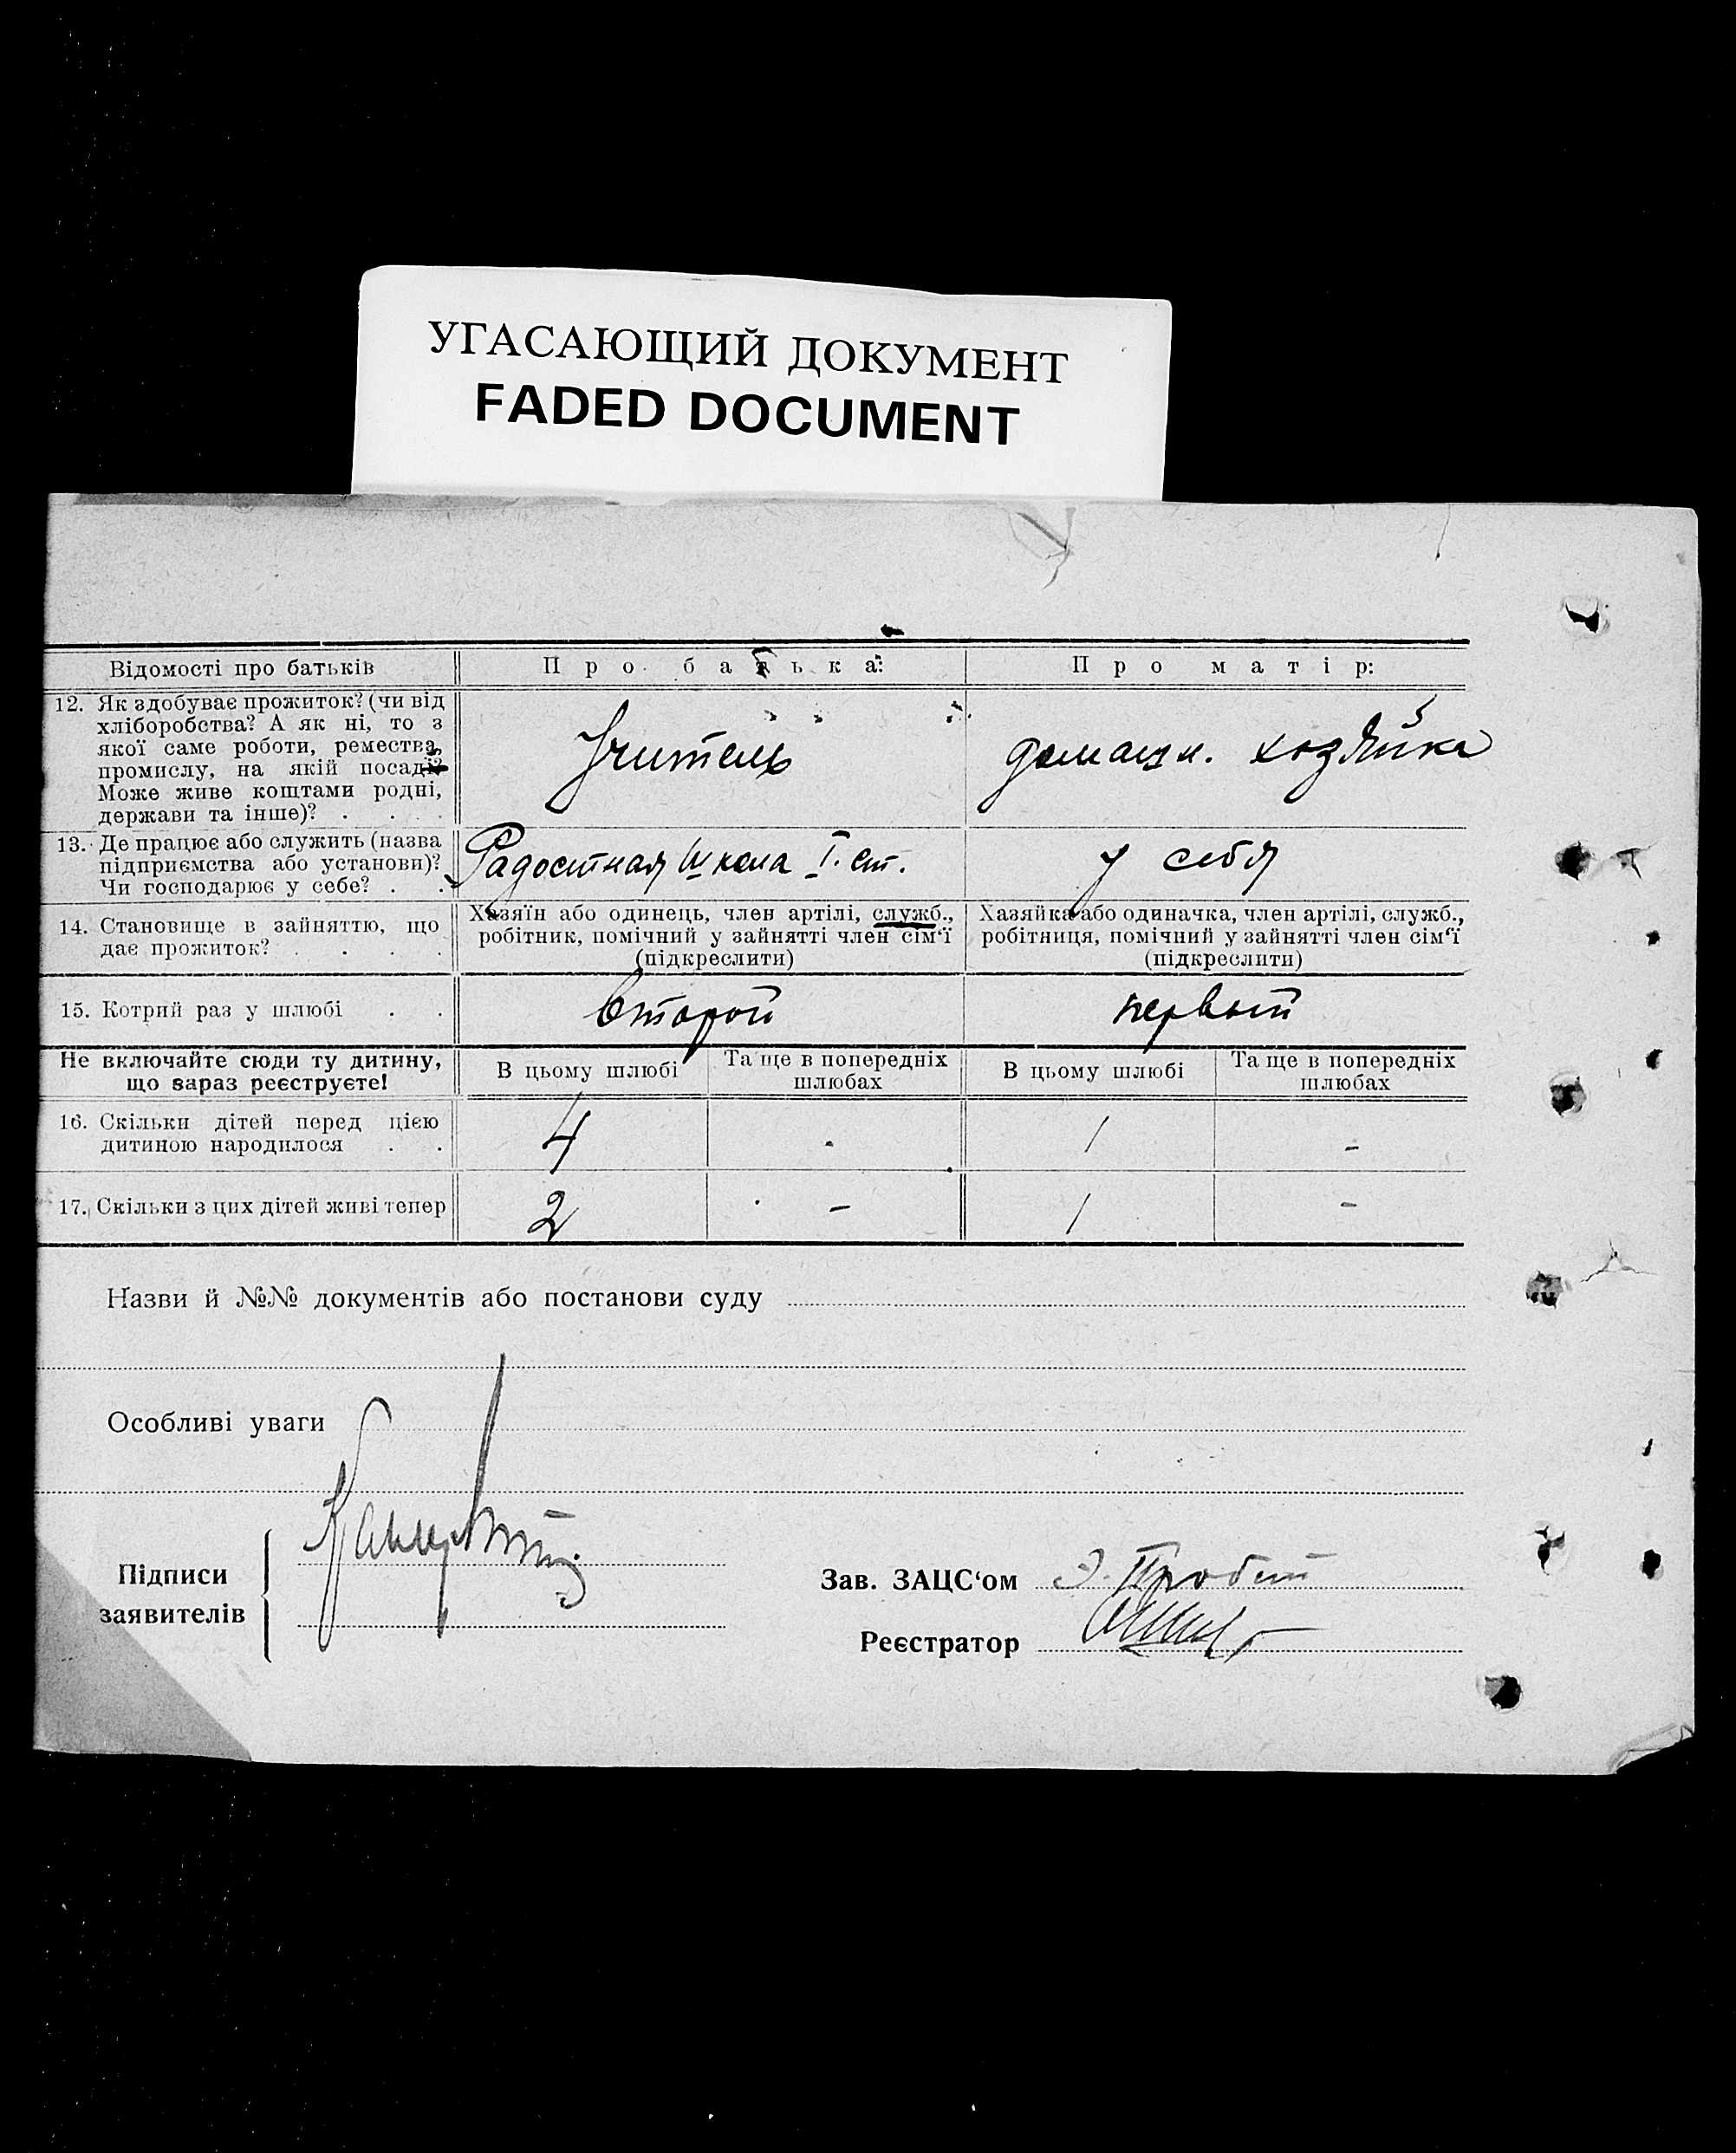 УГАСАЮЩИЙ ДОКУМЕНТ
FADED DOCUMENT
Відомості про батьків
Про батька:
Про матір:
12. Як здобуває прожиток? (чи від
хліборобства? А як ні, то з
якої саме роботи, ремества,
промислу, на якій посаді?
Може живе коштами родні,
держави та інше)? . . . .
Учитель
домашн. хозяйка
13. Де працює або служить (назва
підприємства або установи)?
Чи господарює у себе? . .
Радостная школа I. ст.
у себя
14. Становище в зайняттю, що
дає прожиток? . . . .
Хазяїн або одинець, член артілі, служб.,
робітник, помічний у зайнятті член сім‘ї
(підкреслити)
Хазяйка або одиначка, член артілі, служб.,
робітниця, помічний у зайнятті член сім‘ї
(підкреслити)
15. Котрий раз у шлюбі . .
второй
первый
Не включайте сюди ту дитину,
що зараз реєструєте!
В цьому шлюбі
Та ще в попередніх
шлюбах
В цьому шлюбі
Та ще в попередніх
шлюбах
16. Скільки дітей перед цією
дитиною народилося . .
4
-
1
-
17. Скільки з цих дітей живі тепер
2
-
1
-
Назви й №№ документів або постанови суду
Особливі уваги
Підписи
заявителів
Зав. ЗАЦС‘ом
Реєстратор